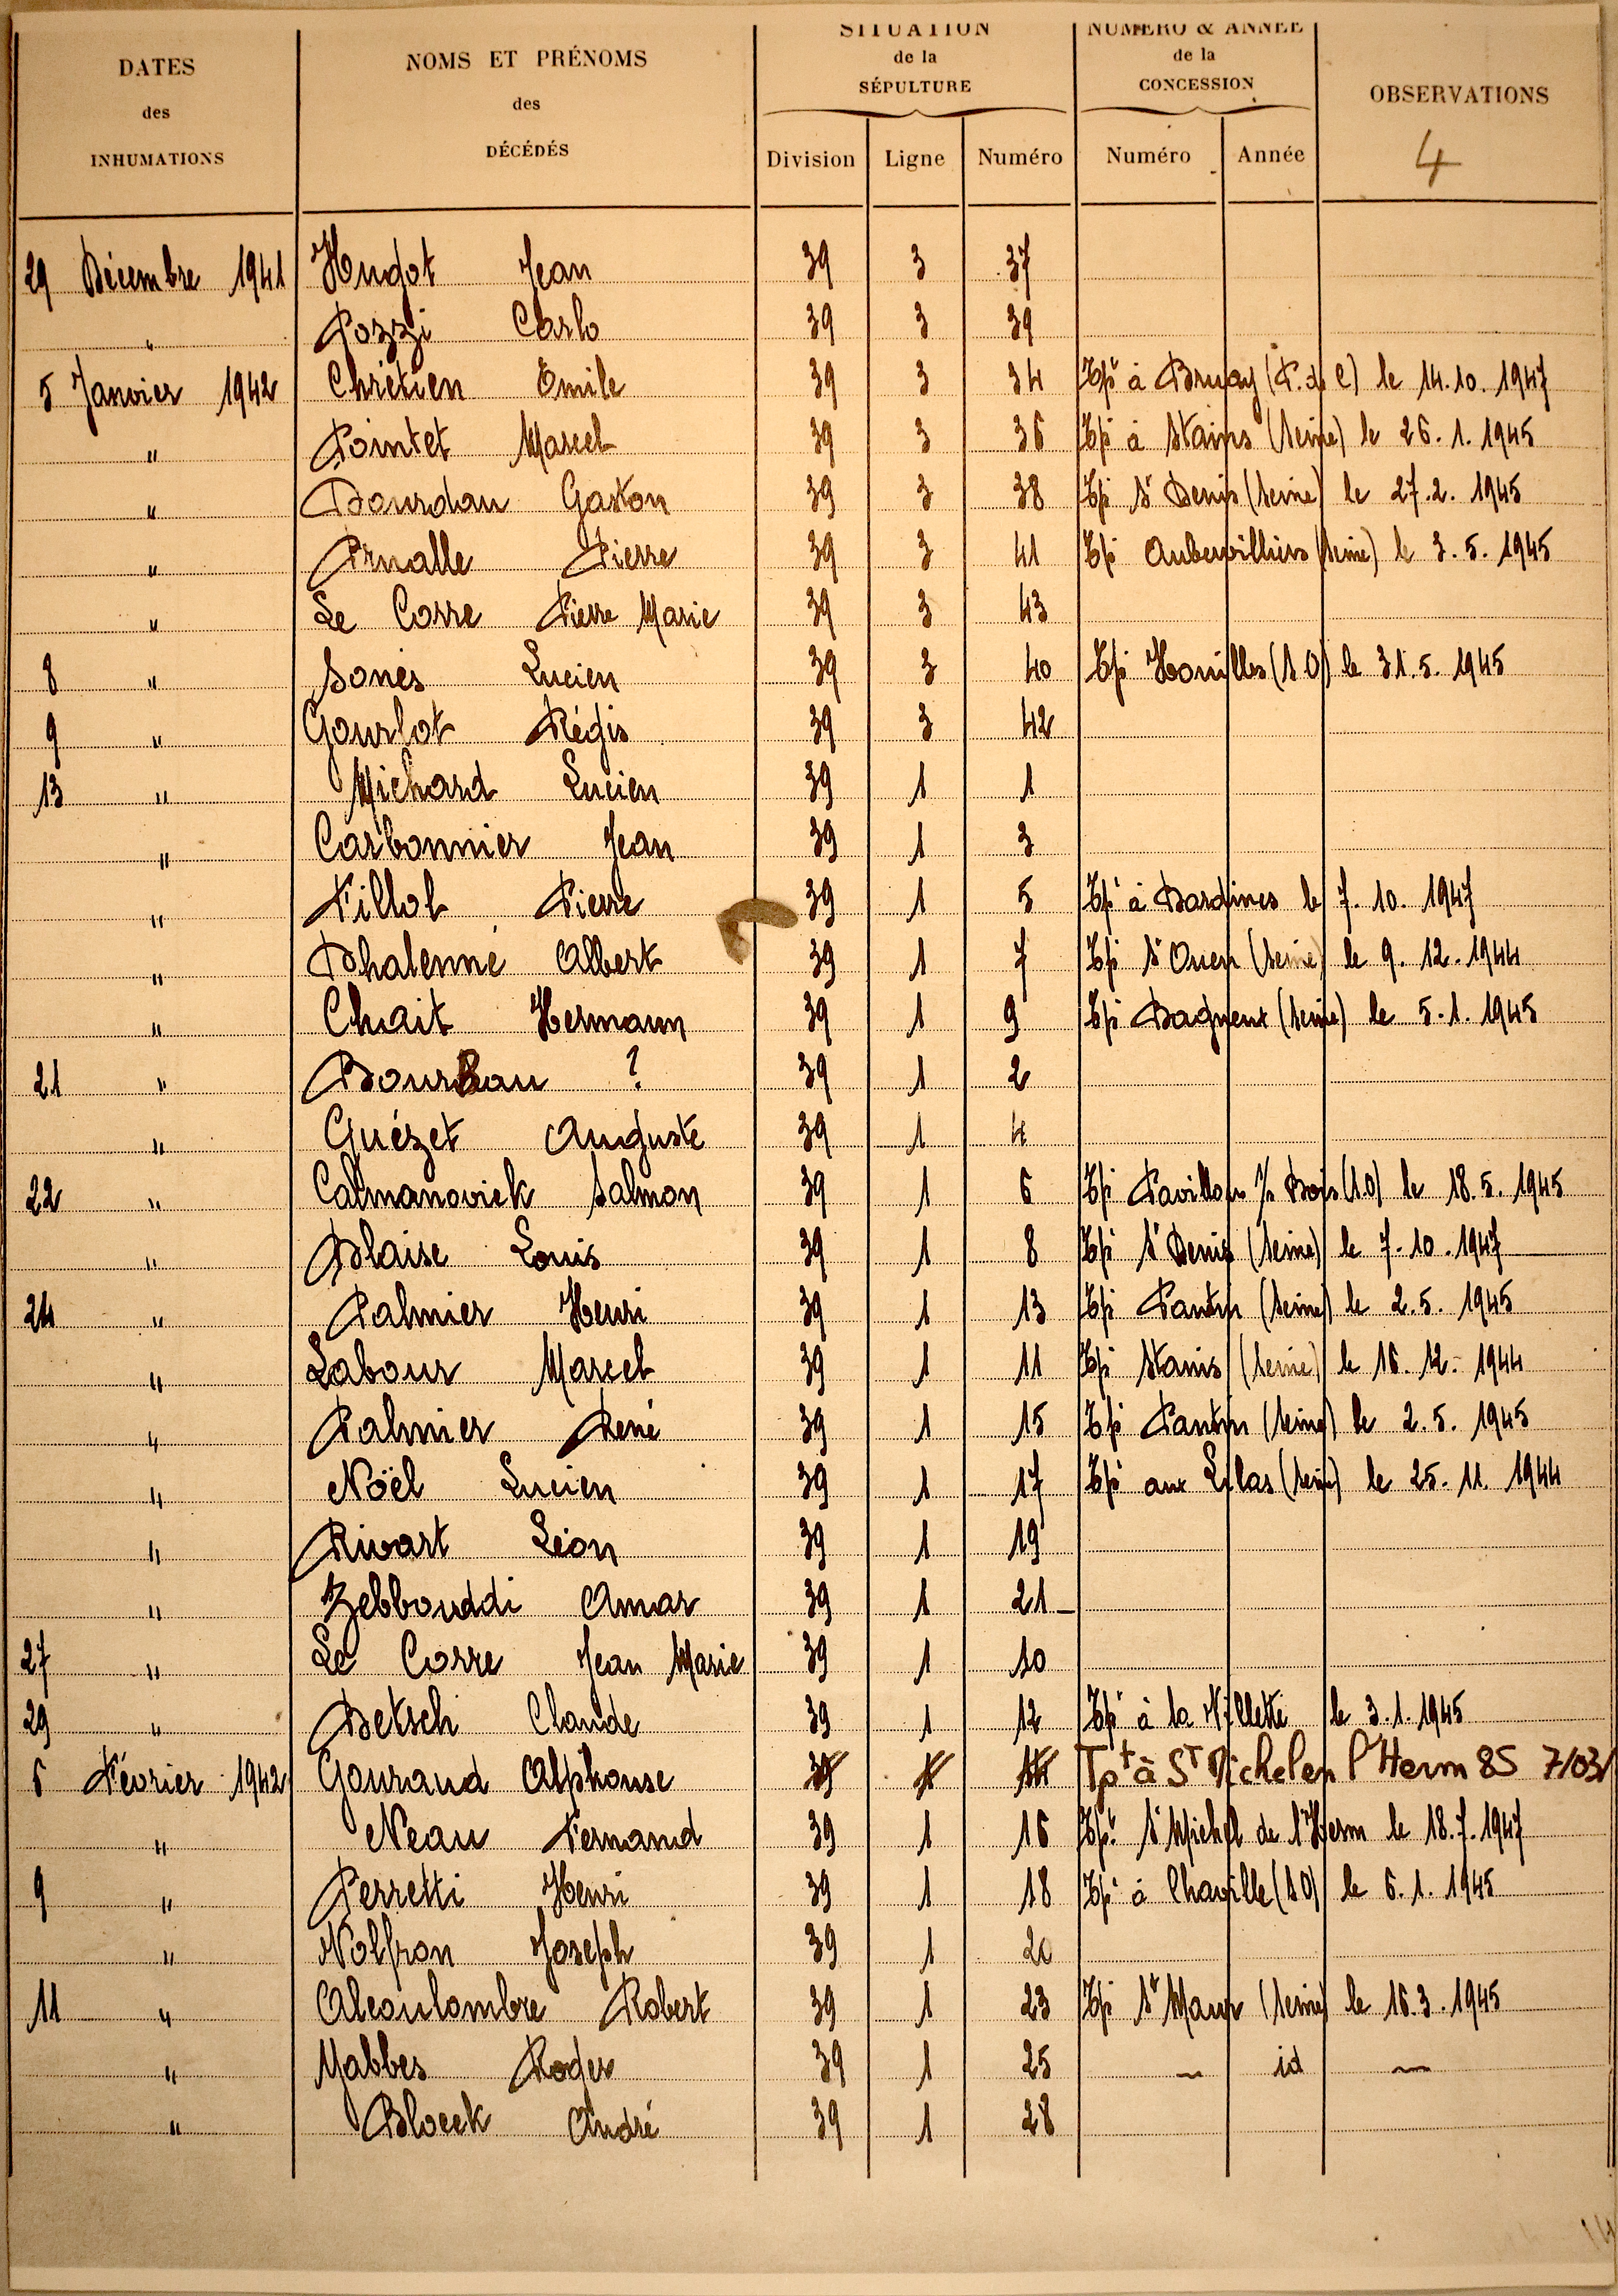 DATES des INHUMATIONS
NOMS ET PRÉNOMS des DÉCÉDÉS
SITUATION de la SÉPULTURE
NUMÉRO & ANNÉE de la CONCESSION
OBSERVATIONS
Division Ligne Numéro Numéro Année 4
29 Décembre 1941 Hudot Jean 39 3 37
" Pozzi Carlo 39 3 39
5 Janvier 1942 Chrétien Emile 39 3 34 Tpt à Bruay (P. de C) le 14.10.1947
" Pointet Marcel 39 3 36 Tpt à Stains (Seine) le 26.1.1945
" Dourdan Gaston 39 3 38 Tpt St Denis (Seine) le 27.2.1945
" Prualle Pierre 39 3 41 Tpt Aubervilliers (Seine) le 3.5.1945
" Le Corre Pierre Marie 39 3 43
8 " Sonès Lucien 39 3 40 Tpt Houilles (S.O) le 31.5.1945
9 " Gourlot Régis 39 3 42
13 " Michard Lucien 39 1 1
" Carbonnier Jean 39 1 3
" Fillol Pierre 39 1 5 Tpt à le 7.10.1947
" Dhalenne Albert 39 1 7 Tpt St Ouen (Seine) le 9.12.1944
" Chait Hermann 39 1 9 Tpt Bagneux (Seine) le 5.1.1945
21 " ? 39 1 2
" Guézet Auguste 39 1 4
22 " Calmanovick Salmon 39 1 6 Tpt Pavillons s/s Bois (S.O) le 18.5.1945
" Blaise Louis 39 1 8 Tpt St Denis (Seine) le 7.10.1947
24 " Palmier Henri 39 1 13 Tpt Pantin (Seine) le 2.5.1945
" Labour Marcel 39 1 11 Tpt Stains (Seine) le 16.12.1944
" Palmier René 39 1 15 Tpt Pantin (Seine) le 2.5.1945
" Noël Lucien 39 1 17 Tpt aux Lilas (Seine) le 25.11.1944
" Rivart Léon 39 1 19
" Zebbouddi Amar 39 1 21
27 " Le Corre Jean Marie 39 1 10
29 " Betsch Claude 39 1 12 Tpt à la Villette le 3.1.1945
6 Février 1942 Gouraud Alphonse 39 1 14 Tpt à St Michel en l'Herm 85 7/03/
" Neau Fernand 39 1 16 Tpt St Michel de l'Herm le 18.7.1947
9 " Perretti Henri 39 1 18 Tpt à Chaville (S.O) le 6.1.1945
" Nolfron Joseph 39 1 20
11 " Alcoulombre Robert 39 1 23 Tpt St Maur (Seine) le 16.3.1945
" Mabbes Roger 39 1 25 — id —
" Bloeck André 39 1 28